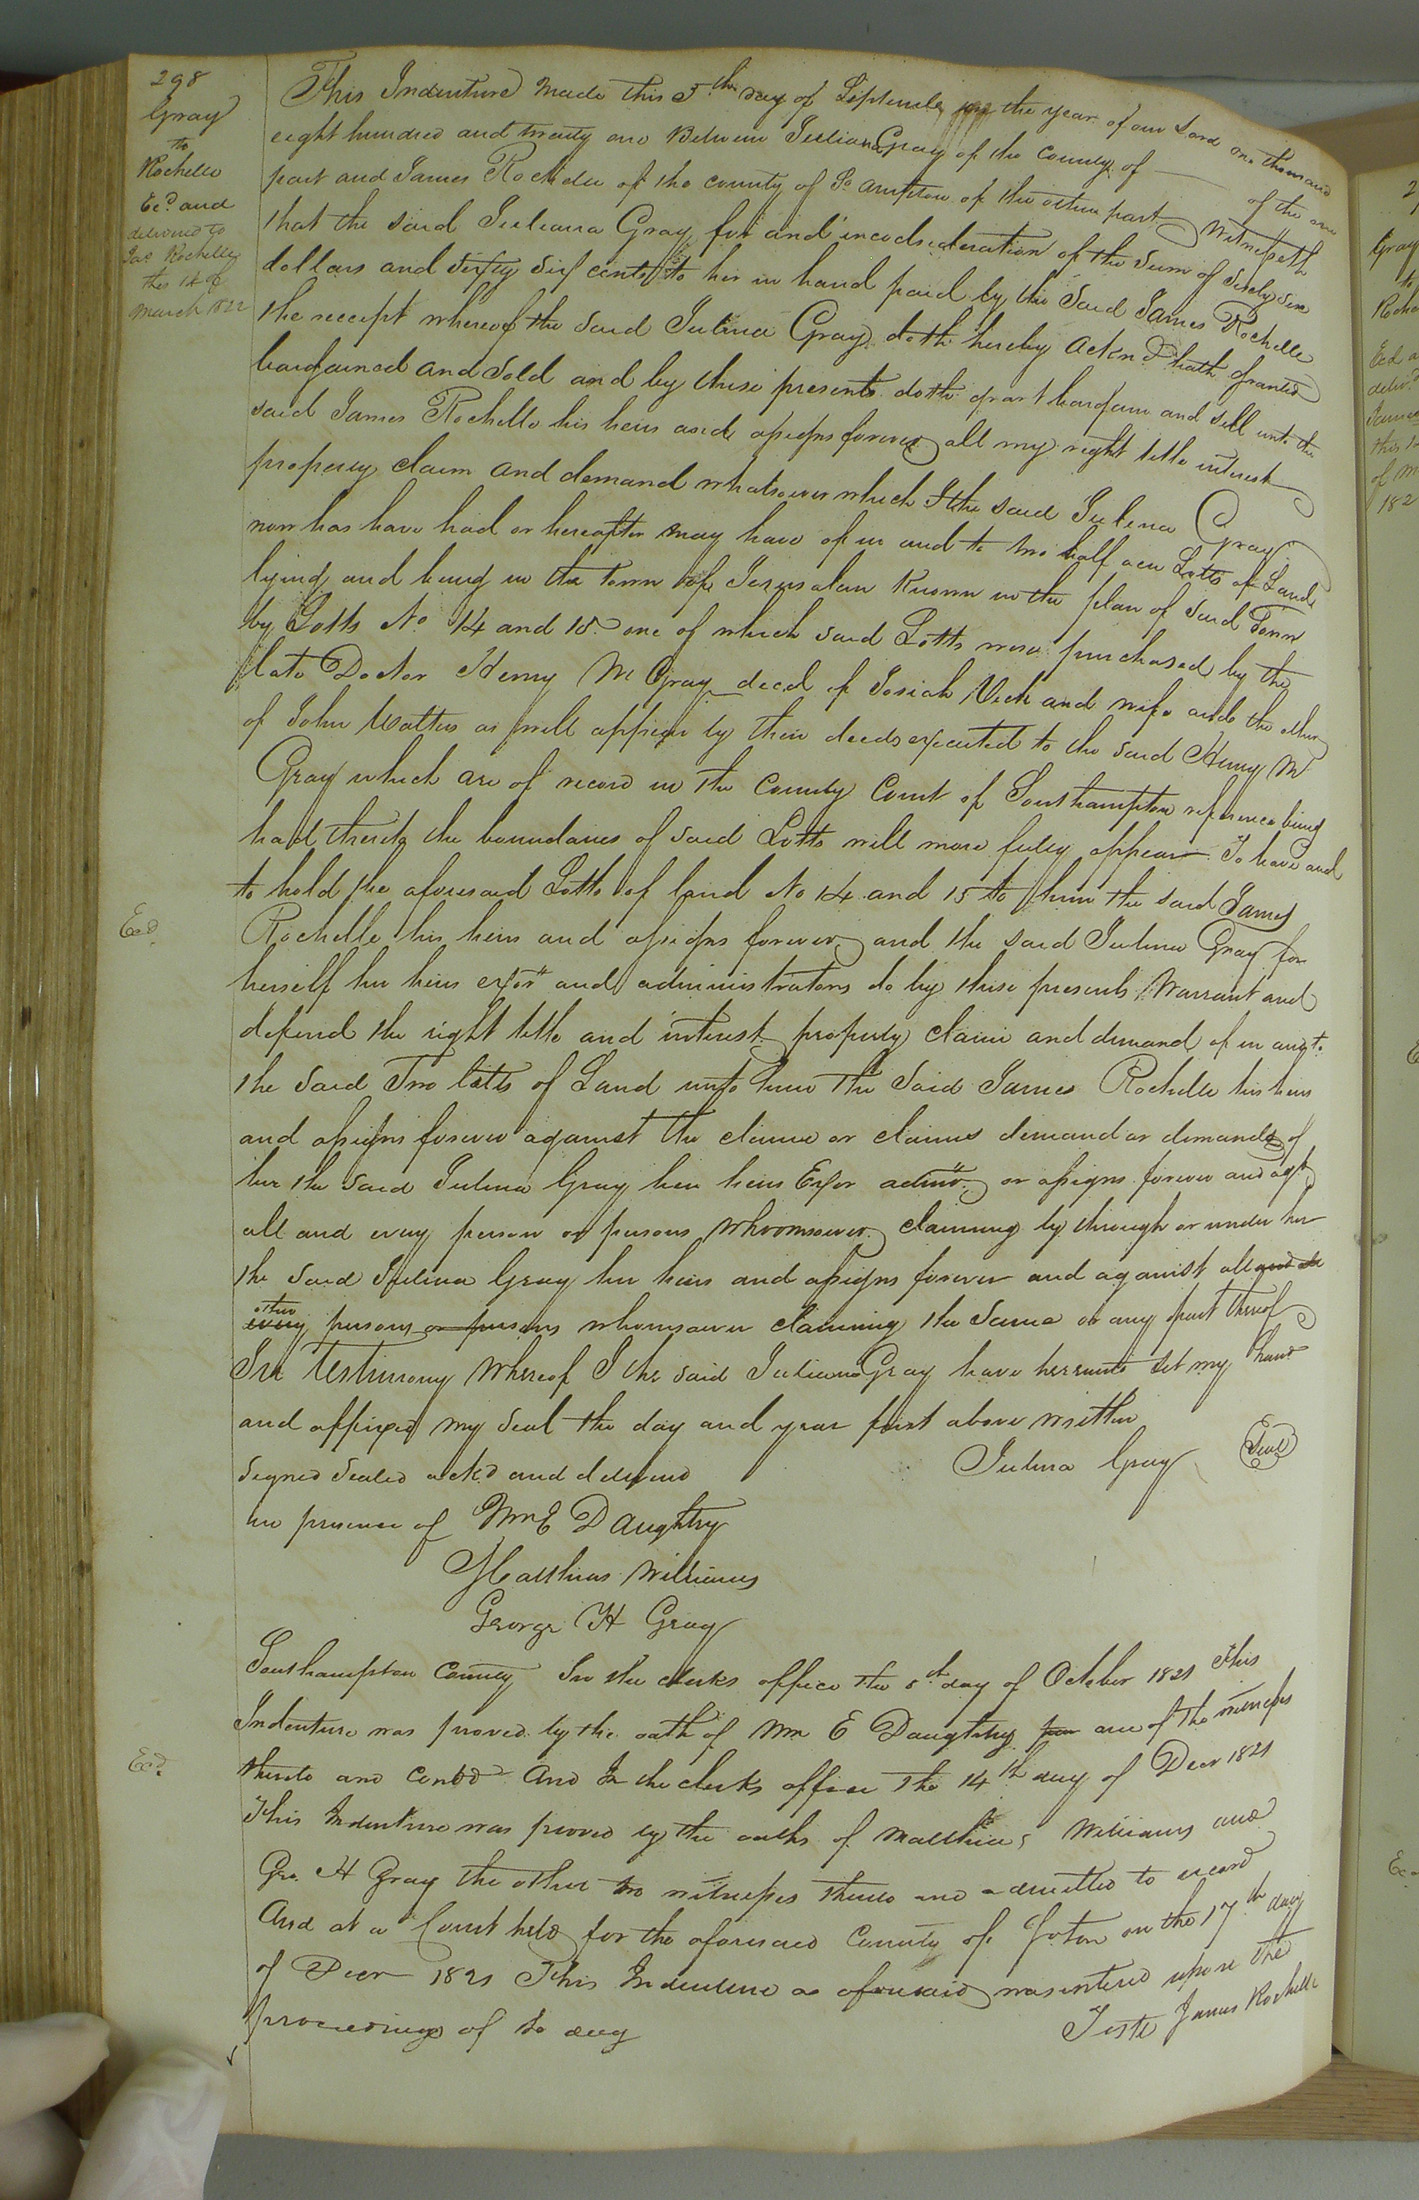 298
Gray
to
Rochelle
Exd. and
delivered to
Jas Rochelle
this 14 of
March 1822
This Indenture made this 5th day of September in the year of our Lord one thousand
eight hundred and twenty one Between Juliana Gray of the county of —— of the one
part and James Rochelle of the county of So ampton of the other part Witnesseth
that the said Juliana Gray for and in consideration of the sum of sixty six
dollars and sixty six cents to her in hand paid by the said James Rochelle
the receipt whereof the said Julina Gray doth hereby acknd hath granted
bargained and sold and by these presents doth grant bargain and sell unto the
said James Rochelle his heirs and assigns forever all my right title interest
property claim and demand whatsoever which I the said Julina Gray
now has have had or hereafter may have of in and to two half acre Lotts of Land
lying and being in the town of Jerusalem known in the plan of said Town
by Lotts No. 14 and 15 one of which said Lotts were purchased by the
late Doctor Henry M Gray decd of Josiah Vick and wife and the other
of John Watkins as will appear by their deeds executed to the said Henry M
Gray which are of record in the County Court of Southampton reference being
had thereto the boundaries of said Lotts will more fully appear To have and
to hold the aforesaid Lotts of land No 14 and 15 to him the said James
Exd.
Rochelle his heirs and assigns forever and the said Julina Gray for
herself her heirs exors and administrators do by these presents Warrant and
defend the right title and interest property claim and demand of in and to
the said Two lotts of Land unto him the said James Rochelle his heirs
and assigns forever against the claim or claims demand or demands of
her the said Julina Gray her heirs Exor admr. or assigns forever and agst
all and every person or persons whoomsoever claiming by through or under her
the said Julina Gray her heirs and assigns forever and against all and all
other
every persons or persons whomsoever claiming the same or any part thereof
In Testimony whereof I the said Juliana Gray have hereunto set my hand
and affixed my seal the day and year first above written
Signed Sealed ackd and delivered Julina Gray Seal
in presence of Wm E Daughtry
Matthias Williams
George H Gray
Southampton County In the clerks office the 5th day of October 1821 This
Indenture was proved by the oath of Wm E Daughtry one of the witnesses
Exd.
thereto and Contd And In the clerks office the 14th day of Decr 1821
This Indenture was proved by the oaths of Matthias Williams and
Geo. H Gray the other two witnesses thereto and admitted to record
And at a Court held for the aforesaid County of Soton on the 17th day
of Decr 1821 This Indenture as aforesaid was entered upon the
proceedings of to day
Teste James Rochelle
Gray
to